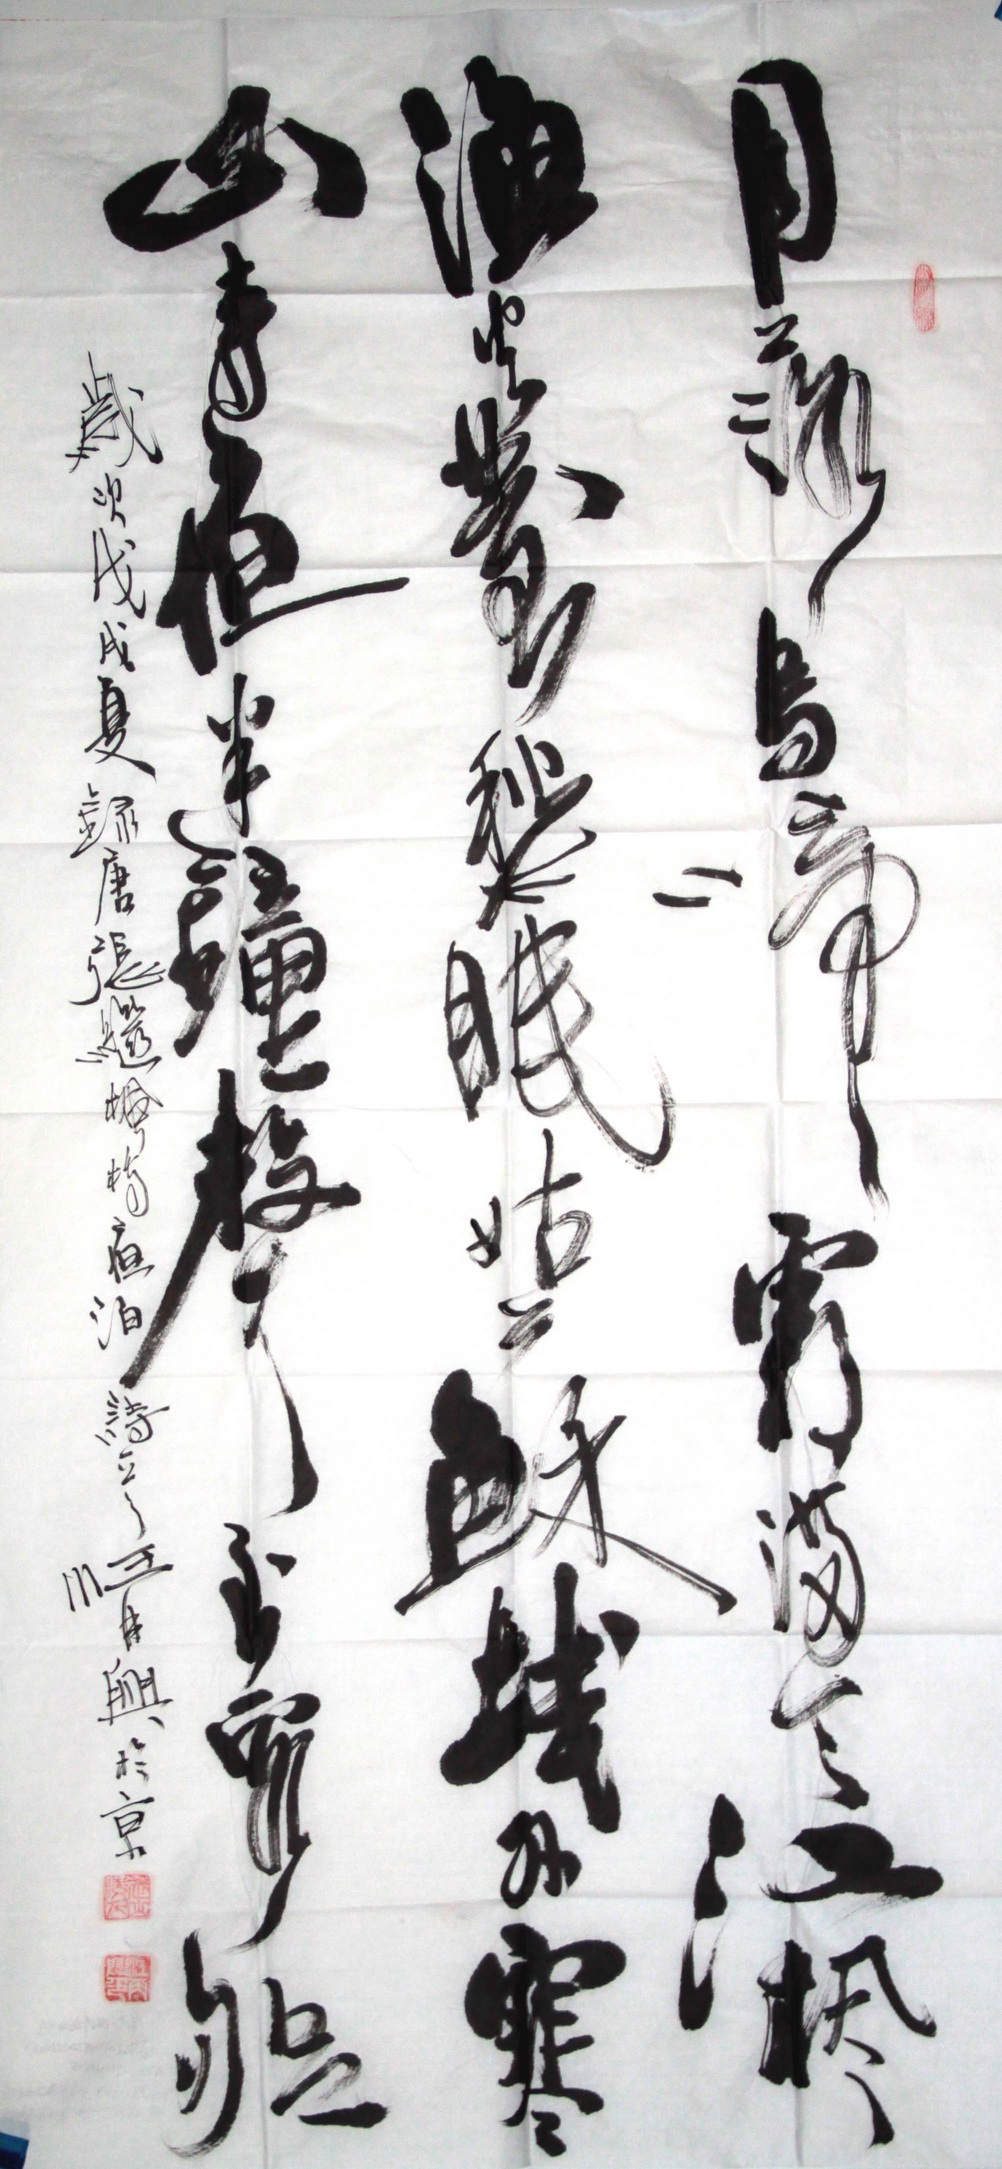 月落烏啼霜滿天江楓
漁火對愁眠姑蘇城外寒
山寺夜半鐘聲到客船
歲次戊戌夏錄唐張繼楓橋夜泊詩一首汪月興於京